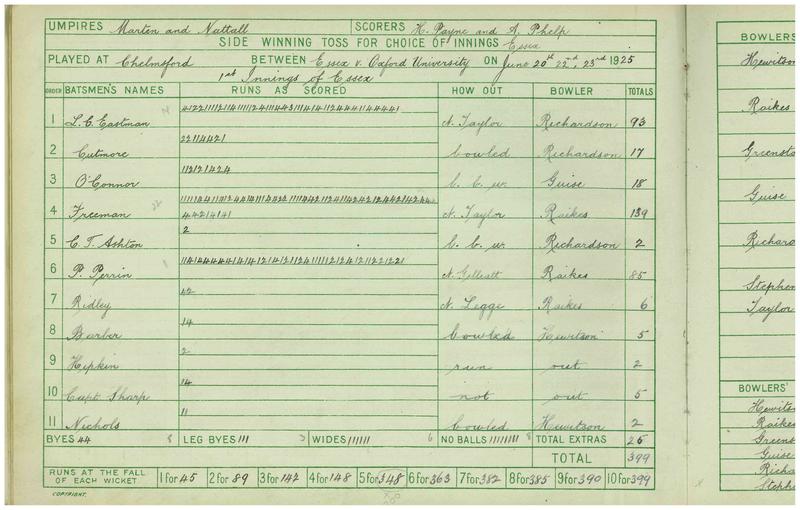 UMPIRES Marten and Nuttall SCORERS H. Payne and A. Phelp
SIDE WINNING TOSS FOR CHOICE OF INNINGS Essex
PLAYED AT Chelmsford BETWEEN Essex v. Oxford University ON June 20th 22nd, 23rd 1925
1st Innings of Essex
ORDER BATSMEN'S NAMES RUNS AS SCORED HOW OUT BOWLER TOTALS
1 L. C. Eastman c. Taylor Richardson 93
2 Cutmore 22114421 bowled Richardson 17
3 O'Connor 112121424 l. b. w Guise 18
4 Freeman 44214141 c. Taylor Raikes 139
5 C. T. Ashton 2 l. b. w Richardson 2
6 P. Perrin c. Gilliatt Raikes 85
7 Ridley 42 c. Legge Raikes 6
8 Barber 14 bowled Hewitson 5
9 Hipkin 2 run out 2
10 Capt. Sharp 14 not out 5
11 Nichols 11 bowled Hewitson 2
BYES 44 8 LEG BYES 111 3 WIDES 111111 6 NO BALLS 11111111 8 TOTAL EXTRAS 25
TOTAL 399
RUNS AT THE FALL OF EACH WICKET 1 for 45 2 for 89 3 for 142 4 for 148 5 for 348 6 for 363 7 for 382 8 for 385 9 for 390 10 for 399
COPYRIGHT.
BOWLERS
Hewitson
Raikes
Greensto
Guise
Richard
Stephen
Taylor
BOWLERS'
Hewits
Raikes
Greens
Guise
Richa
Steph